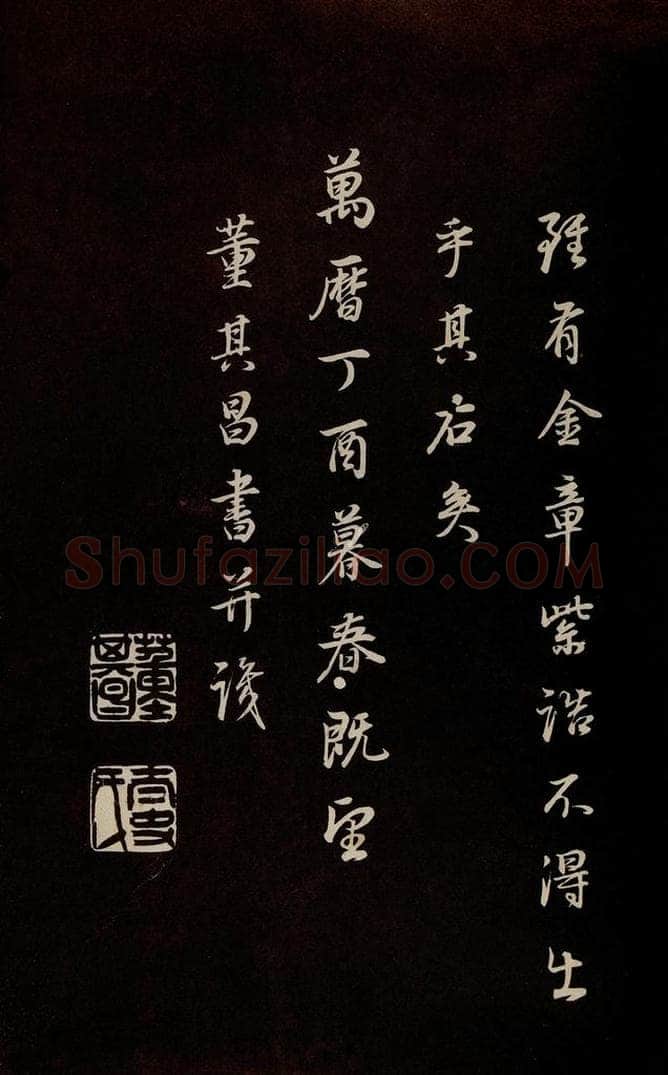 雖有金章紫誥不得出
乎其右矣
萬曆丁酉暮春既望
董其昌書并識
Shufaziliao.COM